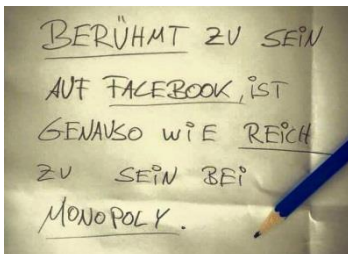 BERÜHMT ZU SEIN
AUF FACEBOOK, iST
GENAUSO WiE REiCH
ZU SEiN BEi
MONOPOLY.